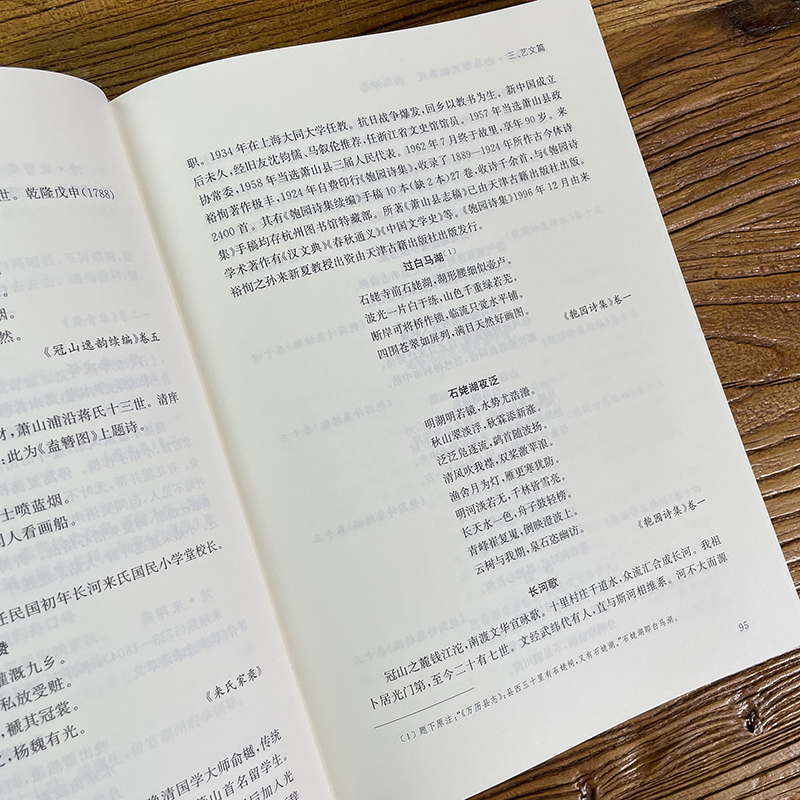 世。乾隆戊申(1788)
烟。
然。
《冠山逸韵续编》卷五
材，萧山浦沿蒋氏十三世。清庠
；此为《盍簪图》上题诗。
土喷蓝烟。
人看画船。
任民国初年长河来氏国民小学堂校长。
赞
灌溉九乡。
私放受赃。
，褫其冠裳。
，杨魏有光。
《来氏家乘》
晚清国学大师俞樾，传统
萧山首名留学生。
后加入光
三、艺文篇
职。1934年在上海大同大学任教。抗日战争爆发，回乡以教书为生。新中国成立
后未久，经旧友沈钧儒、马叙伦推荐，任浙江省文史馆馆员。1957年当选萧山县政
协常委，1958年当选萧山县三届人民代表。1962年7月终于故里，享年90岁。来
裕恂著作极丰，1924年自费印行《匏园诗集》，收录了1889—1924年所作古今体诗
2400首。其有《匏园诗集续编》手稿10本（缺2本）27卷，收诗千余首，与《匏园诗
集》手稿均存杭州图书馆特藏部。所著《萧山县志稿》已由天津古籍出版社出版。
学术著作有《汉文典》《春秋通义》《中国文学史》等。《匏园诗集》1996年12月由来
裕恂之孙来新夏教授出资由天津古籍出版社出版发行。
过白马湖(1)
石姥寺前石姥湖，湖形腰细似壶卢。
波光一片白于练，山色千重绿若芜。
断岸可将桥作锁，临流只觉水平铺。
四围苍翠如屏列，满目天然好画图。
《匏园诗集》卷一
石姥湖夜泛
明湖明若镜，水势尤浩潏。
秋山翠淡浮，秋霖添新涨。
泛泛凫逐流，鹢首随波扬。
清风吹我襟，双桨激苹浪。
渔舍月为灯，雁更寒犹防。
明河淡若无，千林皆雪亮。
长天水一色，舟子鼓轻榜。
青峰崔复嵬，倒映澄波上。
云树与我期，泉石恣幽访。
《匏园诗集》卷一
长河歌
冠山之麓钱江沱，南渡文华宜咏歌。十里村庄千道水，众流汇合成长河。我祖
卜居光门第，至今二十有七世。文经武纬代有人，直与斯河相维系。河不大而源
(1) 题下原注：“《万历县志》，县西三十里有石姥祠，又有石姥湖。”石姥湖即白马湖。
95